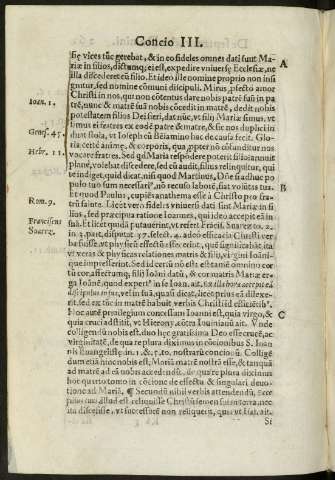 Concio III.
siæ vices tũc gerebat, & in eo fideles omnes dati sunt Ma-
riæ in filios, dictumq́; ei est, expedire vniuersę Ecclesiæ, ne
illa discederet cũ filio. Et ideo ille nomine proprio non insi
gnitur, sed nomine cõmuni discipuli. Mirus, pfecto amor
Christi in nos, qui non cõtentus dare nobis patrẽ suũ in pa
trẽ, nunc & matrẽ suã nobis cõcedit in matrẽ, dedit nobis
potestatem filios Dei fieri, dat nũc, vt filij Mariæ simus. vt
simus ei fratres ex eodẽ patre & matre, & sic nos duplici in
duit stola, vt Ioseph
cætie animę, & corporis,
vocare fratres. Sed qđ Maria respõdere poterit filio annuit
plane, volebat discedere, sed cũ audit, filius relinquitur, qui
te indiget, quid dicat, nisi quod Martinus, Dñe si adhuc po
pulo tuo sum necessari', nõ recuso laborẽ, fiat volũtas tua.
Et quod Paulus, cupiẽs anathema esse à Christo pro fra-
trũ salute. Licet vero fideles vniuersi dati sunt Mariæ in fi
lios, sed præcipua ratione Ioannes, qui ideo accepit eã in
suã. Et licet quidã putauerint, vt refert Frãcis. Suarez to. 2.
in 3. part. disputat. 37. sect. 4. adeo efficacia Christi ver
ba fuisse, vt physicũ effectũ
vt veras & physicas relationes matris & filij, virgini Ioãni-
que impresserint. Sed id certũ nõ est: est tamẽ omnino cer-
tũ cor, affectumq́; filij Ioãni datũ, & cor matris Mariæ er-
ga Ioãnẽ, quod experir' in se Ioan. ait. Ex illa hora accepit eã
discipulus in sua, vel in suã, quasi dicat, licet prius eã dilexe-
rit, sed ex tũc in matrẽ habuit verbis Christi id efficiẽtibus.
Noc autẽ priuilegium concessum Ioanni est, quia virgo, &
quia cruci adstitit, vt Hieronym' cõtra Iouinianũ ait. Vnde
colligendũ nobis est, duo hęc gratissima Deo esse crucẽ, ac
virginitatẽ, de qua re plura diximus in cõcionibus S. Ioan
nis Euangelistę. in 1. & 7. to. nostrarũ concionũ. Colligẽ
dum etiã hinc nobis est, Mariã matrẽ nostrã esse, & tanquã
ad matrẽ ad eã nobis accedendũ, de qua re plura diximus
hoc quarto tomo in cõcione de effectu & singulari deuo-
tione ad Mariã. ¶ Secundũ nihil verbis attendendũ,
pinus quo usus est reliquisse Christũ semen suũ in terra, nec
ita discessisse, vt successorẽ non reliquerit, qui, vt Isai. ait.
Si
A
B
C
Ioan. 1.
Genes. 45.
Hebr. 11.
Rom. 9.
Franciscus
Soarez.